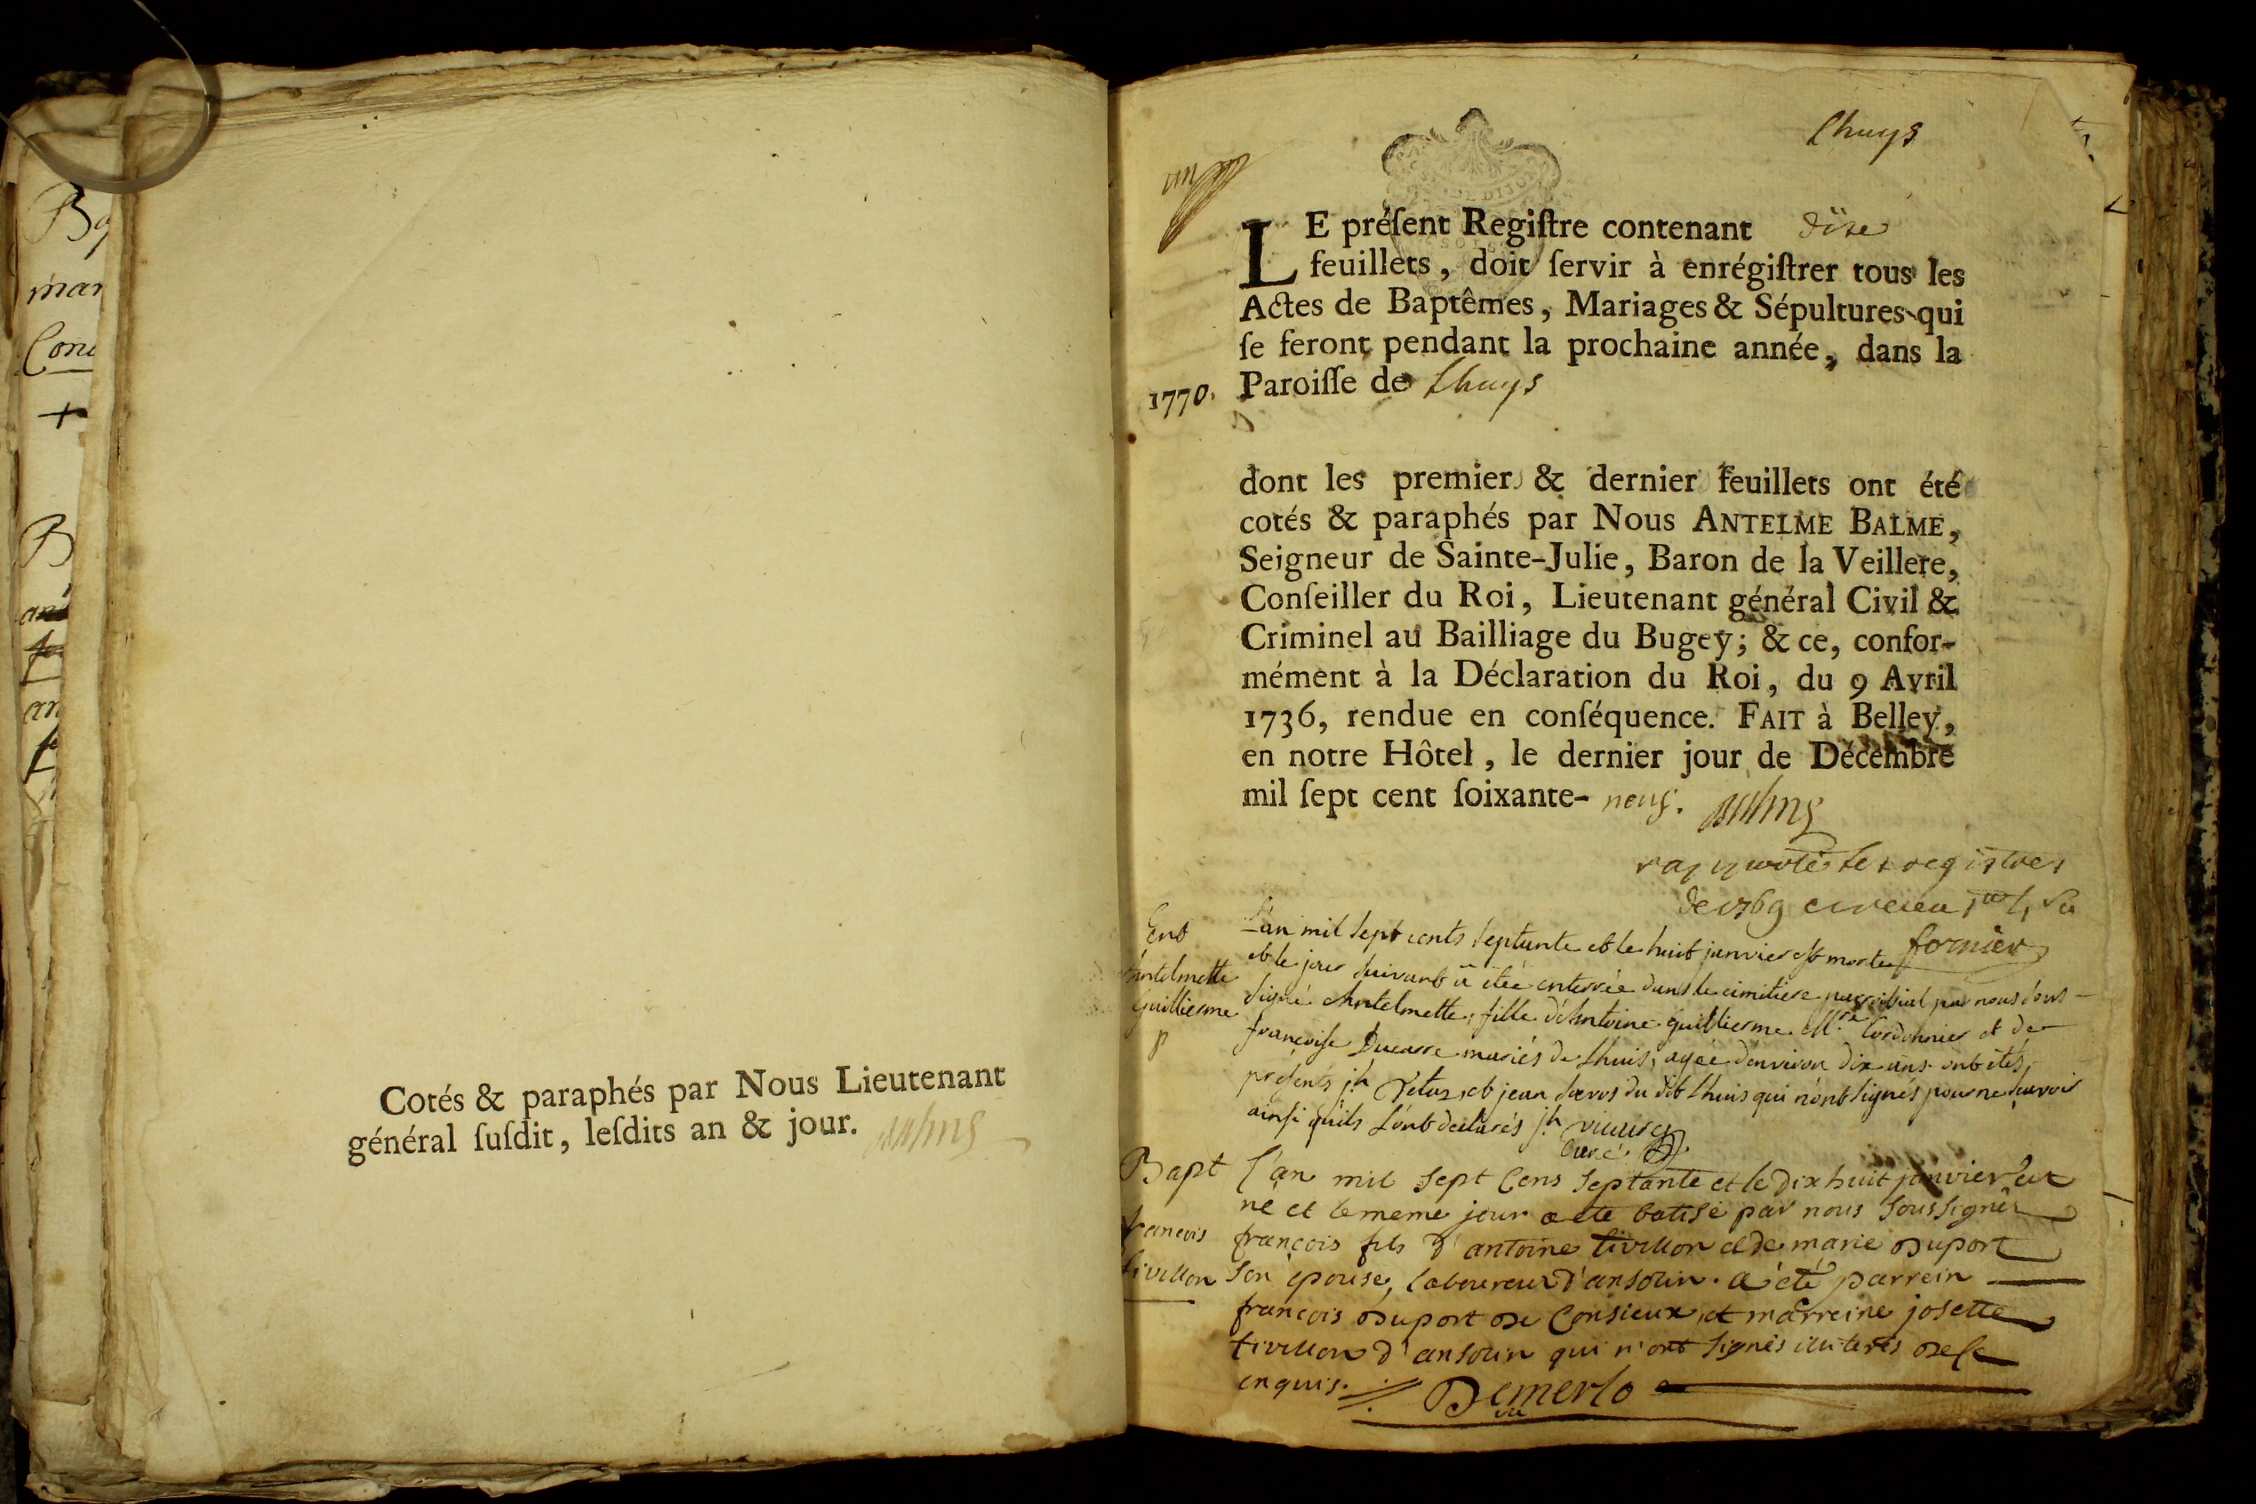 Cotés & paraphés par Nous Lieutenant
général ſuſdit, leſdits an & jour.
Lhuys
un
LE préſent Regiſtre contenant dixe
feuillets, doit ſervir à enrégiſtrer tous les
Actes de Baptêmes, Mariages & Sépultures qui
ſe feront pendant la prochaine année, dans la
1770. Paroiſſe de Lhuys
dont les premier & dernier feuillets ont été
cotés & paraphés par Nous ANTELME BALME,
Seigneur de Sainte-Julie, Baron de la Veillere,
Conſeiller du Roi, Lieutenant général Civil &
Criminel au Bailliage du Bugey; & ce, confor-
mément à la Déclaration du Roi, du 9 Avril
1736, rendue en conſéquence. FAIT à Belley,
en notre Hôtel, le dernier jour de Décembre
mil ſept cent ſoixante- neuf.
rapporté les registres
de 1769
fornier
Ent
Antelmette
Guillierme
L'an mil sept cents septante et le huit janvier est morte
et le jour suivant a étée enterrée dans le cimitiere parroissial par nous sous-
signé Antelmette, fille d'Antoine Guillierme M.re Cordonnier et de
françoise Ducarre mariés de Lhuis, agée d'environ dix ans. ont étés
présents jh et jean du dit Lhuis qui n'ont signés pour ne sçavoir
ainsi qu'ils l'ont declarés jh
Curé
Bapt
francois
tivillon
l'an mil sept Cens septante et le dix huit janvier est
né et le meme jour a été batisé par nous soussigné
françois fils d'antoine tivillon et de marie duport
son épouse, laboureur d'ansolin. a été parrein
françois duport de Consieux et marreine josette
tivillon d'ansolin qui n'ont signés illiterés de ce
enquis. Demerlo
vic